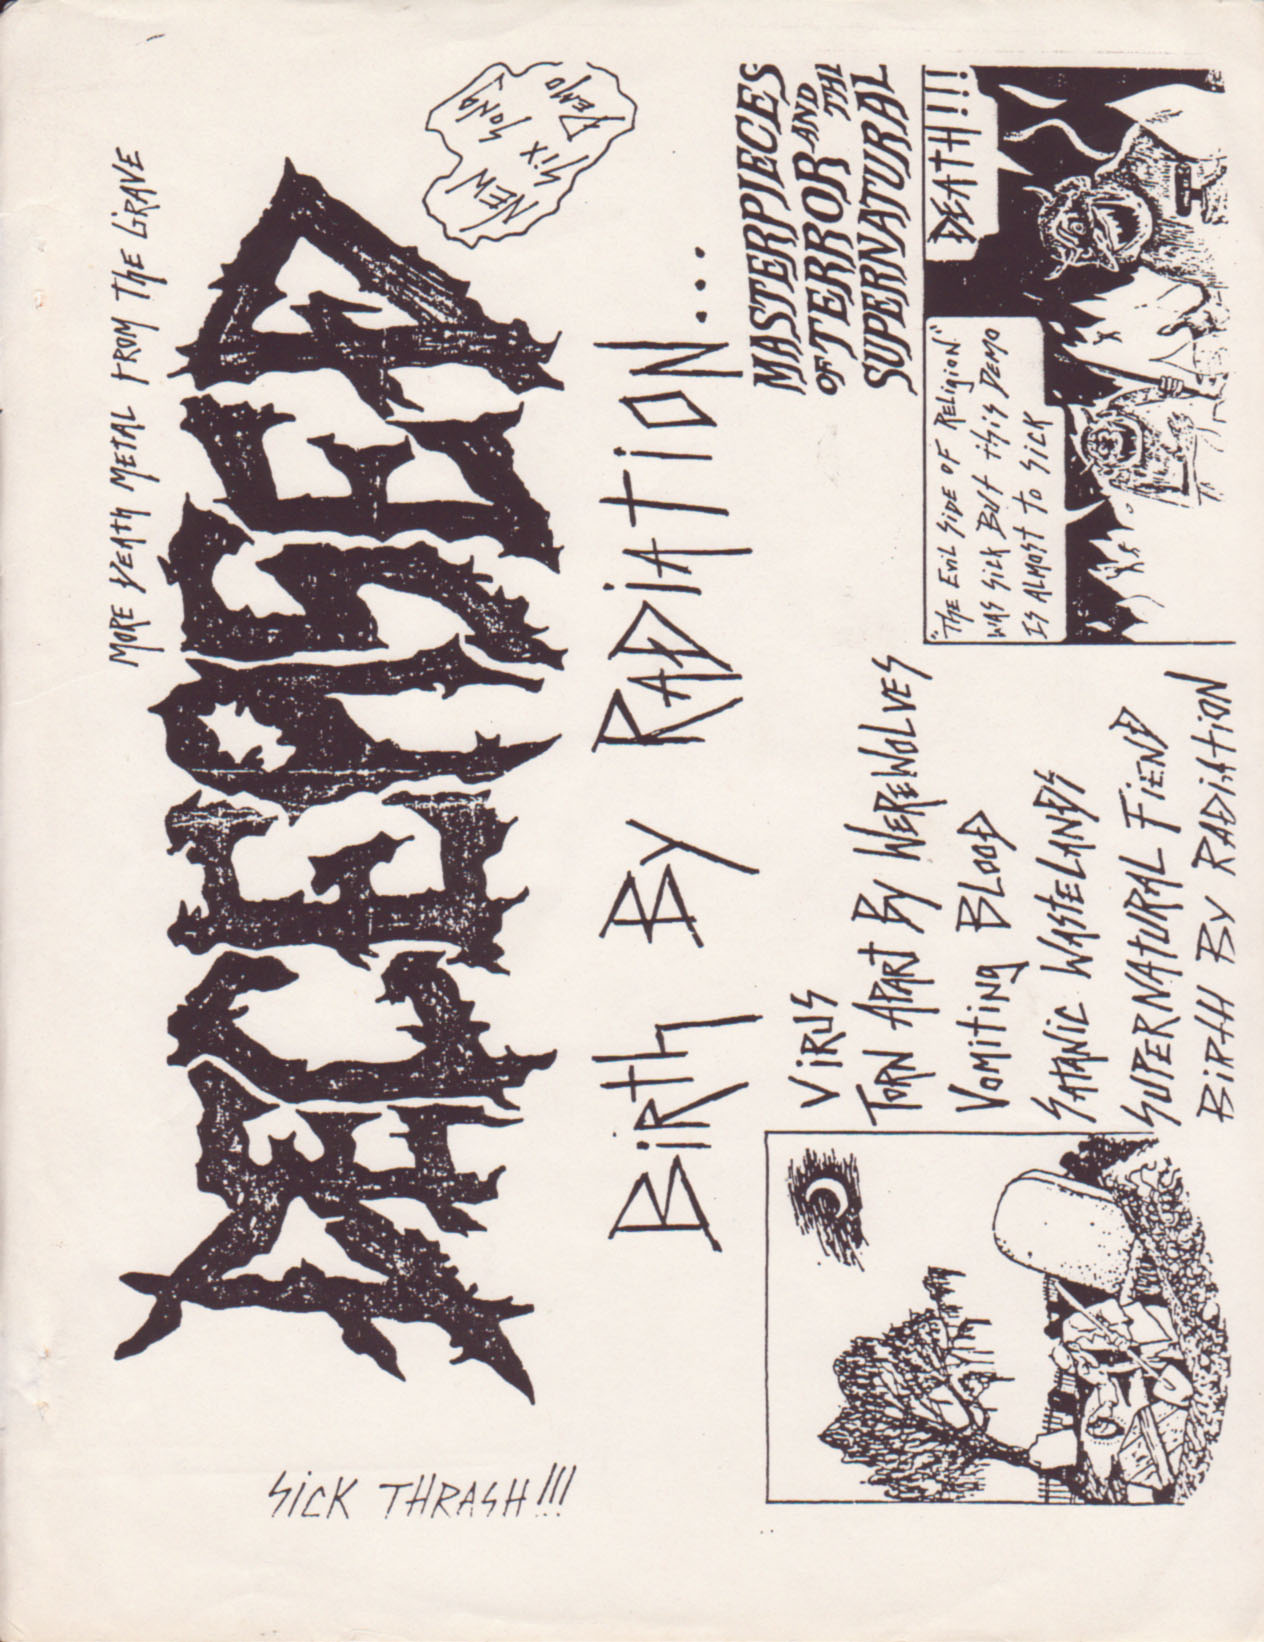 MORE DEATH METAL FROM THE GRAVE
DECEASED
NEW
SIX SONG
DEMO
SICK THRASH!!!
BIRTH BY RADIATION...
VIRUS
TORN APART BY WEREWOLVES
VOMITING BLOOD
SATANIC WASTELANDS
SUPERNATURAL FIEND
BIRTH BY RADIATION
MASTERPIECES
OF TERROR AND
THE
SUPERNATURAL
"THE EVIL SIDE OF RELIGION"
WAS SICK BUT THIS DEMO
IS ALMOST TO SICK
DEATH!!!